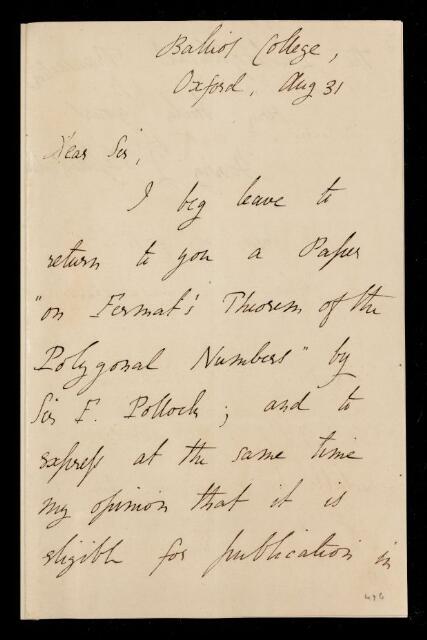 Balliol College,
Oxford, Aug 31
Dear Sir,
I beg leave to
return to you a Paper
"on Fermat's Theorem of the
Polygonal Numbers" by
Sir F. Pollock; and to
express at the same time
my opinion that it is
eligible for publication in